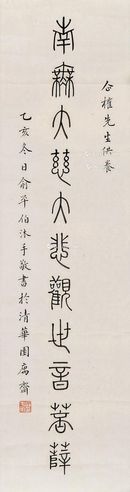 公權先生供養
南無大慈大悲觀世音菩薩
乙亥冬日俞平伯沐手敬書於清華園寓齋